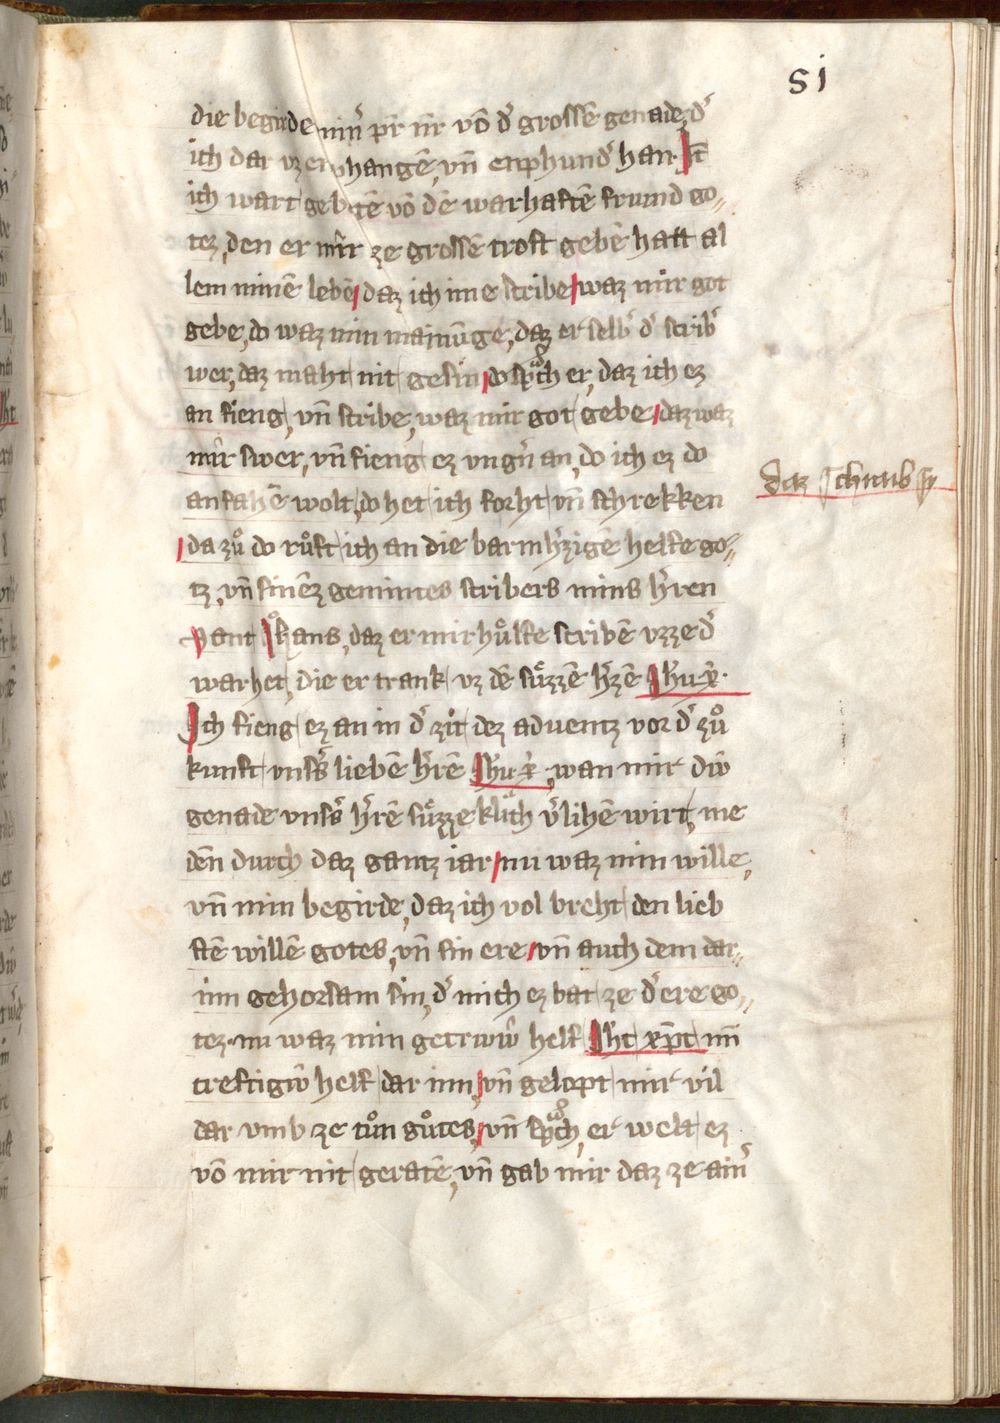 51
die begirde min᷑ pr̄ nr̄ vō d᷑ grossē genade, d᷑
ich dar vz enphangē, vn̄ enphund᷑ han. It̄
ich wart gebetē vō dē warhaftē frund go⸗
tez, den er mir ze grossē trost gebē hatt al
lem minē lebē, daz ich im e scribe waz mir got
gebe, do waz min mainūge, daz er selb᷑ d᷑ scrib᷑
wer, daz maht nit gesin, do sprach er, daz ich ez
an fieng, vn̄ scribe, waz mir got gebe, daz waz
mir swer, vn̄ fieng ez vngn᷑ an, do ich ez do
anfahē wolt, do het ich forht vn̄ schrekken
da zuͦ do ruͦft ich an die barmh᷑zige helfe go⸗
tz, vn̄ sinēz gemintes scribers mins h᷑ren
Sant Johans, daz er mir huͦlfe scribē vzze d᷑
warhet, die er trank vz dē suͤzzē h᷑zē Jhu xp̄i.
Ich fieng ez an in d᷑ zit dez adventz vor d᷑ zuͦ
kunft vnss᷑s liebē h᷑rē Jhu xp̄i, wan mir diu
genade vnss᷑s h᷑rē suͤzzeklich v᷑lihē wirt, me
dēn durch daz gantz iar, nu waz min wille,
vn̄ min begirde, daz ich vol breht den lieb
stē willē gotes, vn̄ sin ere, vn̄ auch dem dar⸗
inn gehorsam sin, d᷑ mich ez bat ze d᷑ ere go⸗
tez. nu waz min getrwiu helf Jht xp̄t min̄
creftigiu helf dar inn, vn̄ gelopt mir vil
dar vmb ze tuͦn guͦtes, vn̄ sprach, er welt ez
vō mir nit geratē, vn̄ gab mir daz ze ain᷑
daz schraib sy